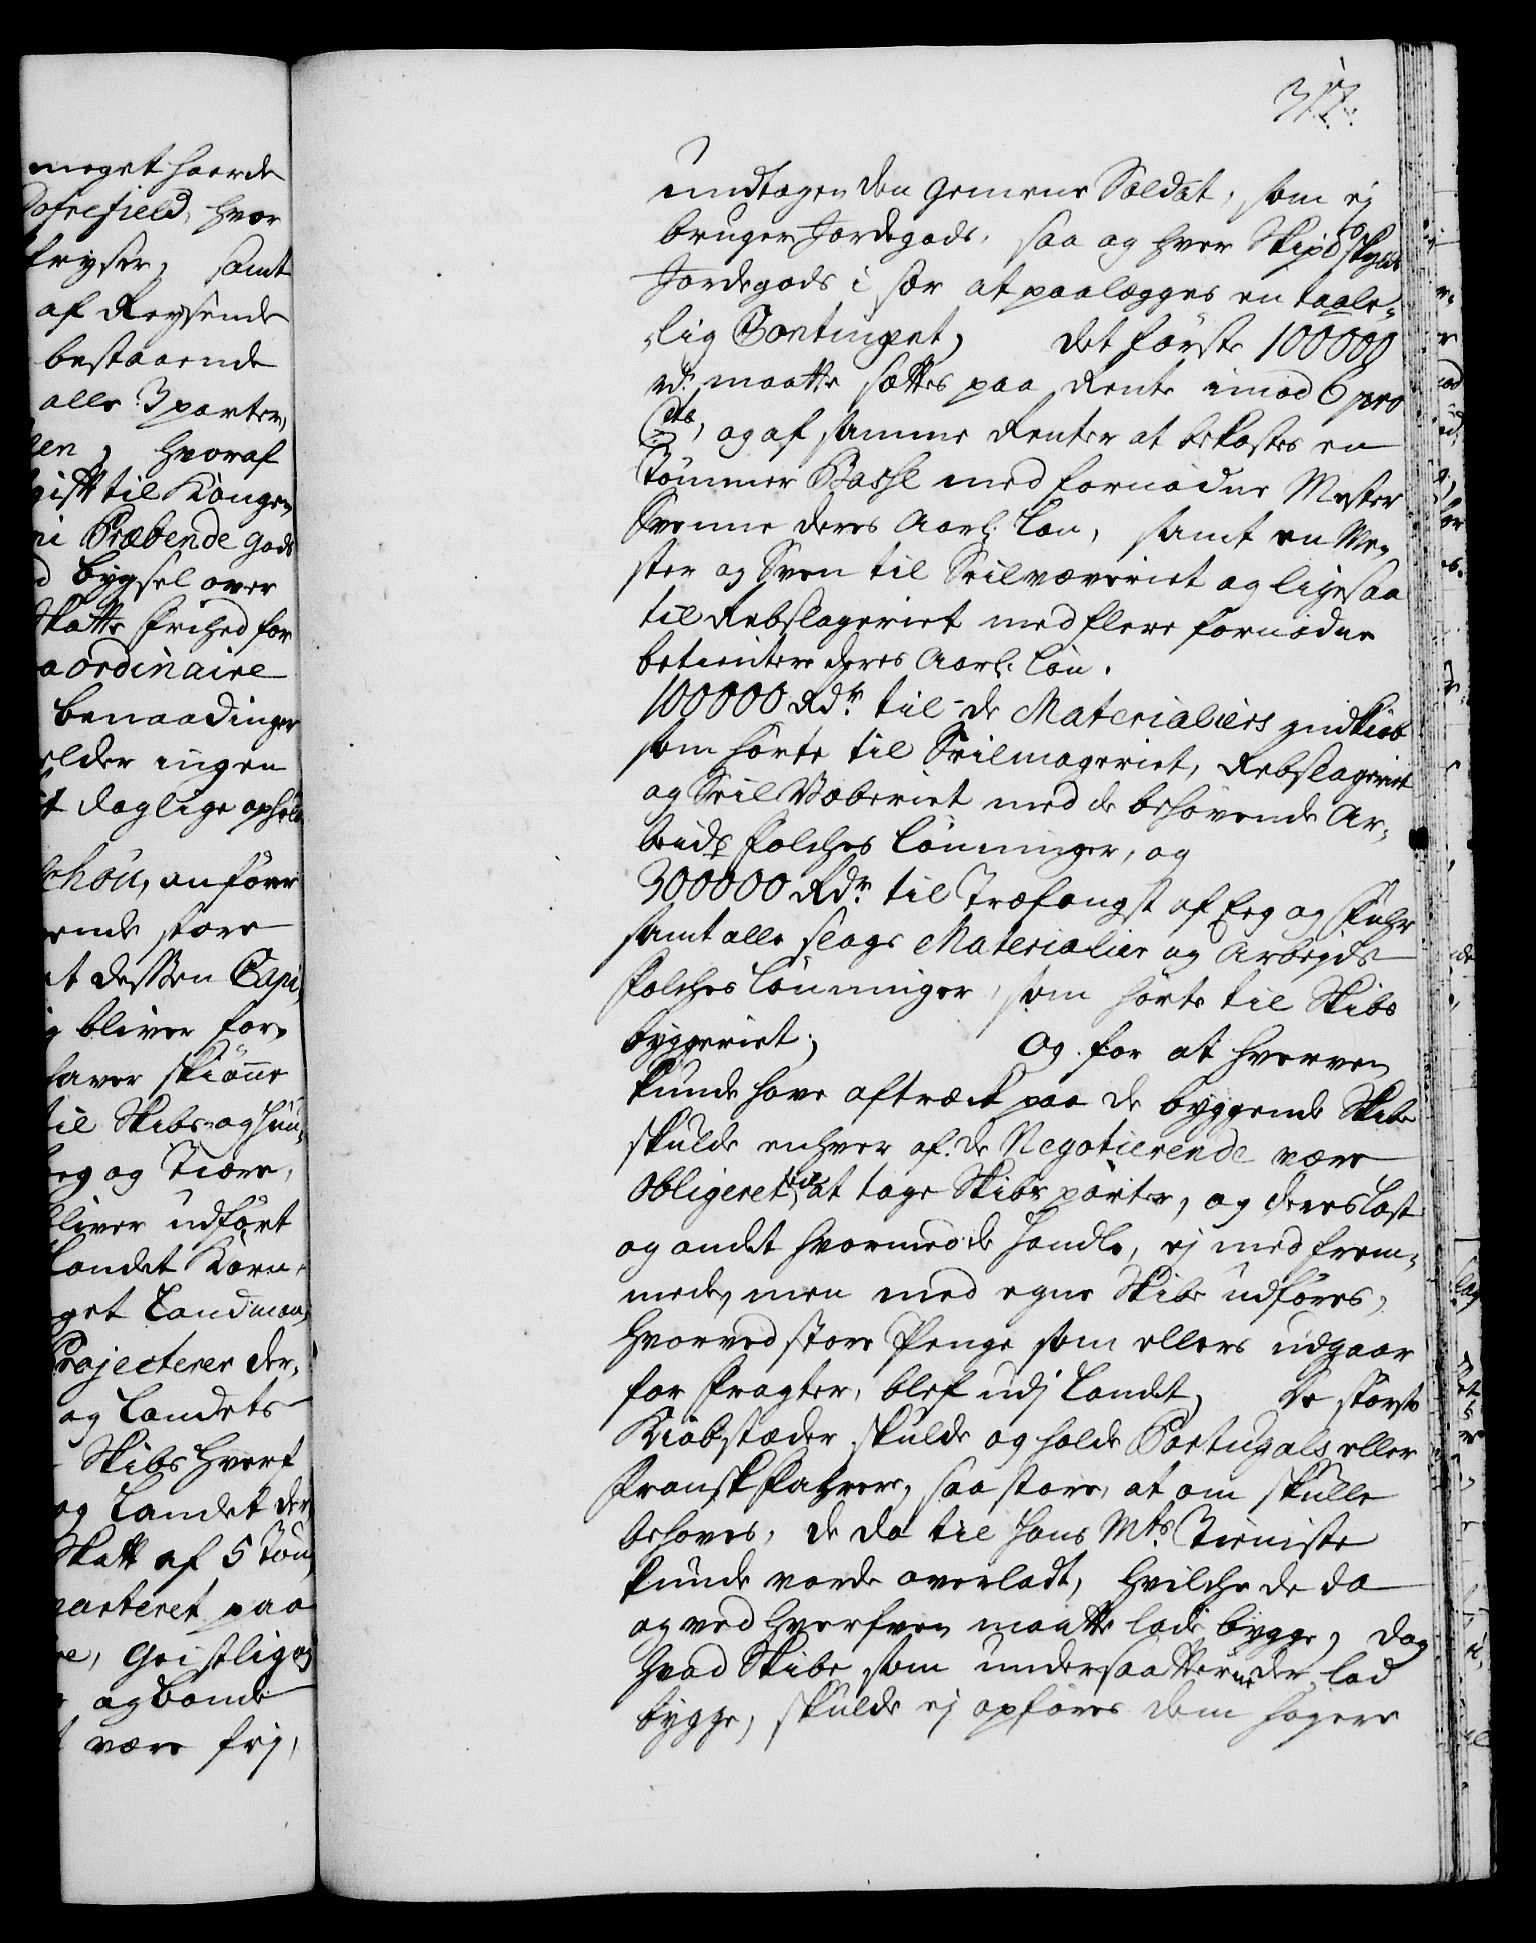 meget haarde
Dofrefield, hvor
fryser, samt
af Reysende
bestaaende
alle 3 parter,
hvoraf
gifft til Kongen
Præbende gods
bygsel over
Skatte frihed for
aordinaire
benaadinger
elder ingen
daglige ophold
anfører
ende store
at dessen Capi,
bliver for,
haver skiønne
til Skibs og huu,
eg og Tiære,
bliver udført
landet Korn,
get Landmand
Projecterer der,
og Landets
Skibs Hverf
og Landet der
Skatt af 5 Tøn,
qvarteret paa
Geistlig og
og bonde
være frj,
317.
undtagen den gemene Soldat, som ej
bruger Jordegods, saa og hver Skipd skyld
Jordegods i sær at paalegges en taale,
,lig Contingent, det første 100000
rdr. maatte sættes paa Rente imod 6 pro
Cto, og af samme Renter at bekostes en
Tømmer med fornødne Mester
Svenne deres Aarl. Løn, samt en Me,
ster og Sven til Seilvæveriet og ligesaa
til Rebslageriet med flere fornødne
betientere deres Aarl. løn.
100000 Rdr. til de Materialiers indkiøb
som hørte til Seilmageriet, Rebslageriet
og Seil Væberiet med de behøvende Ar,
beids folches Lønninger, og
300000 Rdr. til Træfangst af Eeg og Fuhr
samt alle slags Materialier og Arbeyds
folches Lønninger, som hørte til Skibs
byggeriet, Og for at Hverven
kunde have aftræk paa de byggende Skibe
skulde enhver af de Negotierende være
obligeret til at tage Skibs parter, og deres last
og andet hvormed de handle, ej med frem,
mede, men med egne Skibe udføres,
hvorved store Penge som ellers udgaar
for fragter, blef udj Landet, De største
Kiøbstæder skulde og holde Portugals eller
Fransk Fahrere, saa store, at om skulle
behøves, de da til Hans Mts. Tieniste
kunde vorde overladt, hvilche de da
og ved Hverfven maatte lade bygge, dog
hvad Skibe som undersaatterne der lod
bygge, skulde ej opføres dem høgere